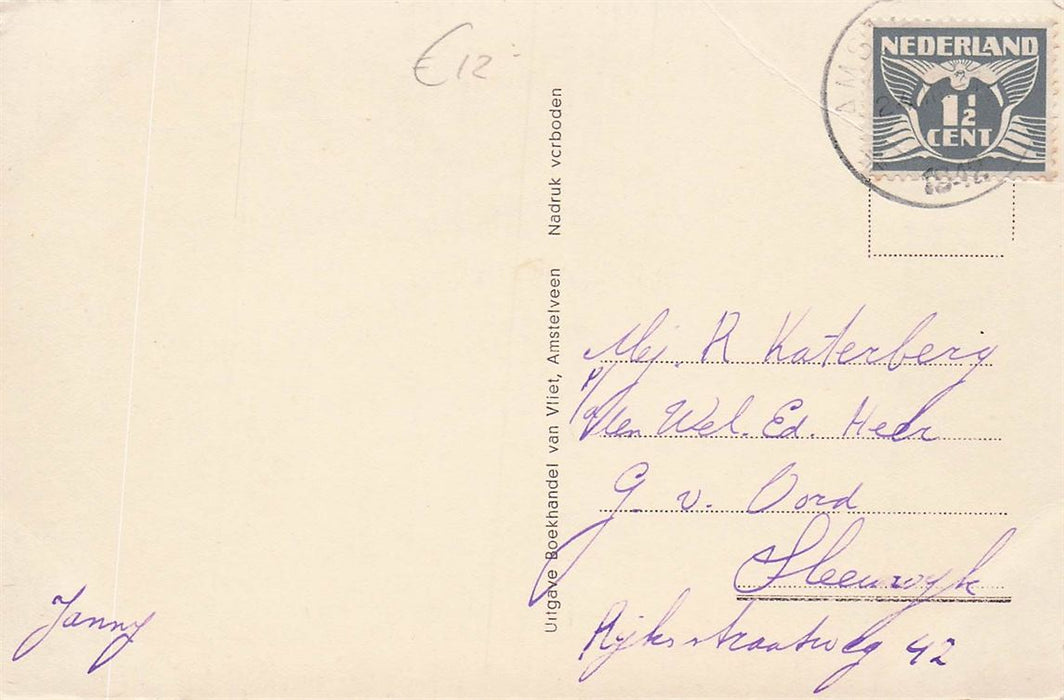 €12-
NEDERLAND
1½
CENT
AMS
1942
Uitgave Boekhandel van Vliet, Amstelveen Nadruk verboden
Mej. R Katerberg
p/a
den Wel. Ed. Heer
G. v. Oord
Sleeuwyk
Rijksstraatweg 42
Janny